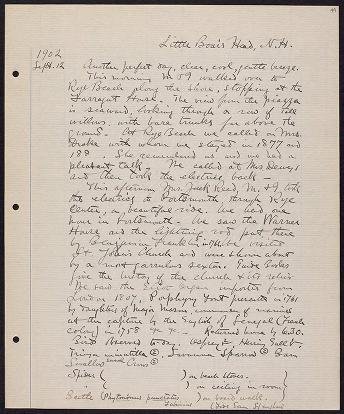 Little Boar's Head, N.H.
1902
Sept. 12
Another perfect day, clear, cool, gentle breeze.
This morning M. & I walked over to
Rye Beach along the shore, stopping at the
Farragut House. The view from the piazza
is seaward, looking through a row of tall
willows, with bare trunks far above the
ground. At Rye Beach we called on Mrs.
Drake with whom we stayed in 1877 and
188 She remembered us and we had a
pleasant talk. We called at Mrs. Dewey's
and then took the electric back —
This afternoon Mrs. Jack Reed, M. & I, took
the electrics to Portsmouth through Rye
Centre, a beautiful ride. We had one
hour in Portsmouth. We saw the Warner
House and the lightning rod put there
by Benjamin Franklin in 1761. We visited
St. John's Church and were shown about
by a most garrulous sexton. Guide Books
give the history of the church & its relics.
We saw the organ imported from
London 1807, Porphyry Font presented in 1761
by daughters of Major Mason, commander of marines
at the capture by the English of Senegal (French
colony) in 1758 Returned home by 6 P.M.
Birds observed to-day. Osprey, Herring Gull,
Tringa minutilla, Savanna Sparrow, Barn
Swallow, Crows
Spider { } on beach stones.
{ } on ceiling in room
Beetle (Phytonomus punctatus) on board walk,